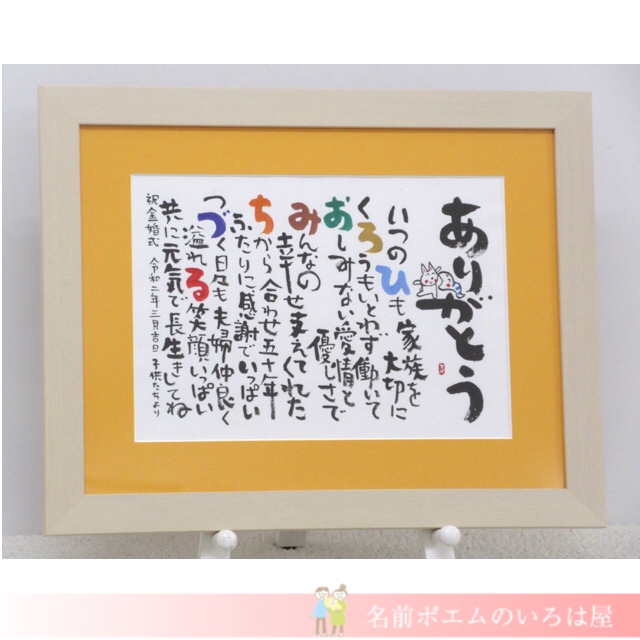 ありがとう
いつのひも家族を
大切に
くろうもいとわず働いて
おしみない愛情と
優しさで
みんなの
幸せ支えてくれた
ちから合わせ五十年
ふたりに感謝でいっぱい
つづく日々も夫婦仲良く
溢れる笑顔いっぱい
共に元気で長生きしてね
祝金婚式 令和二年三月吉日 子供たちより
名前ポエムのいろは屋